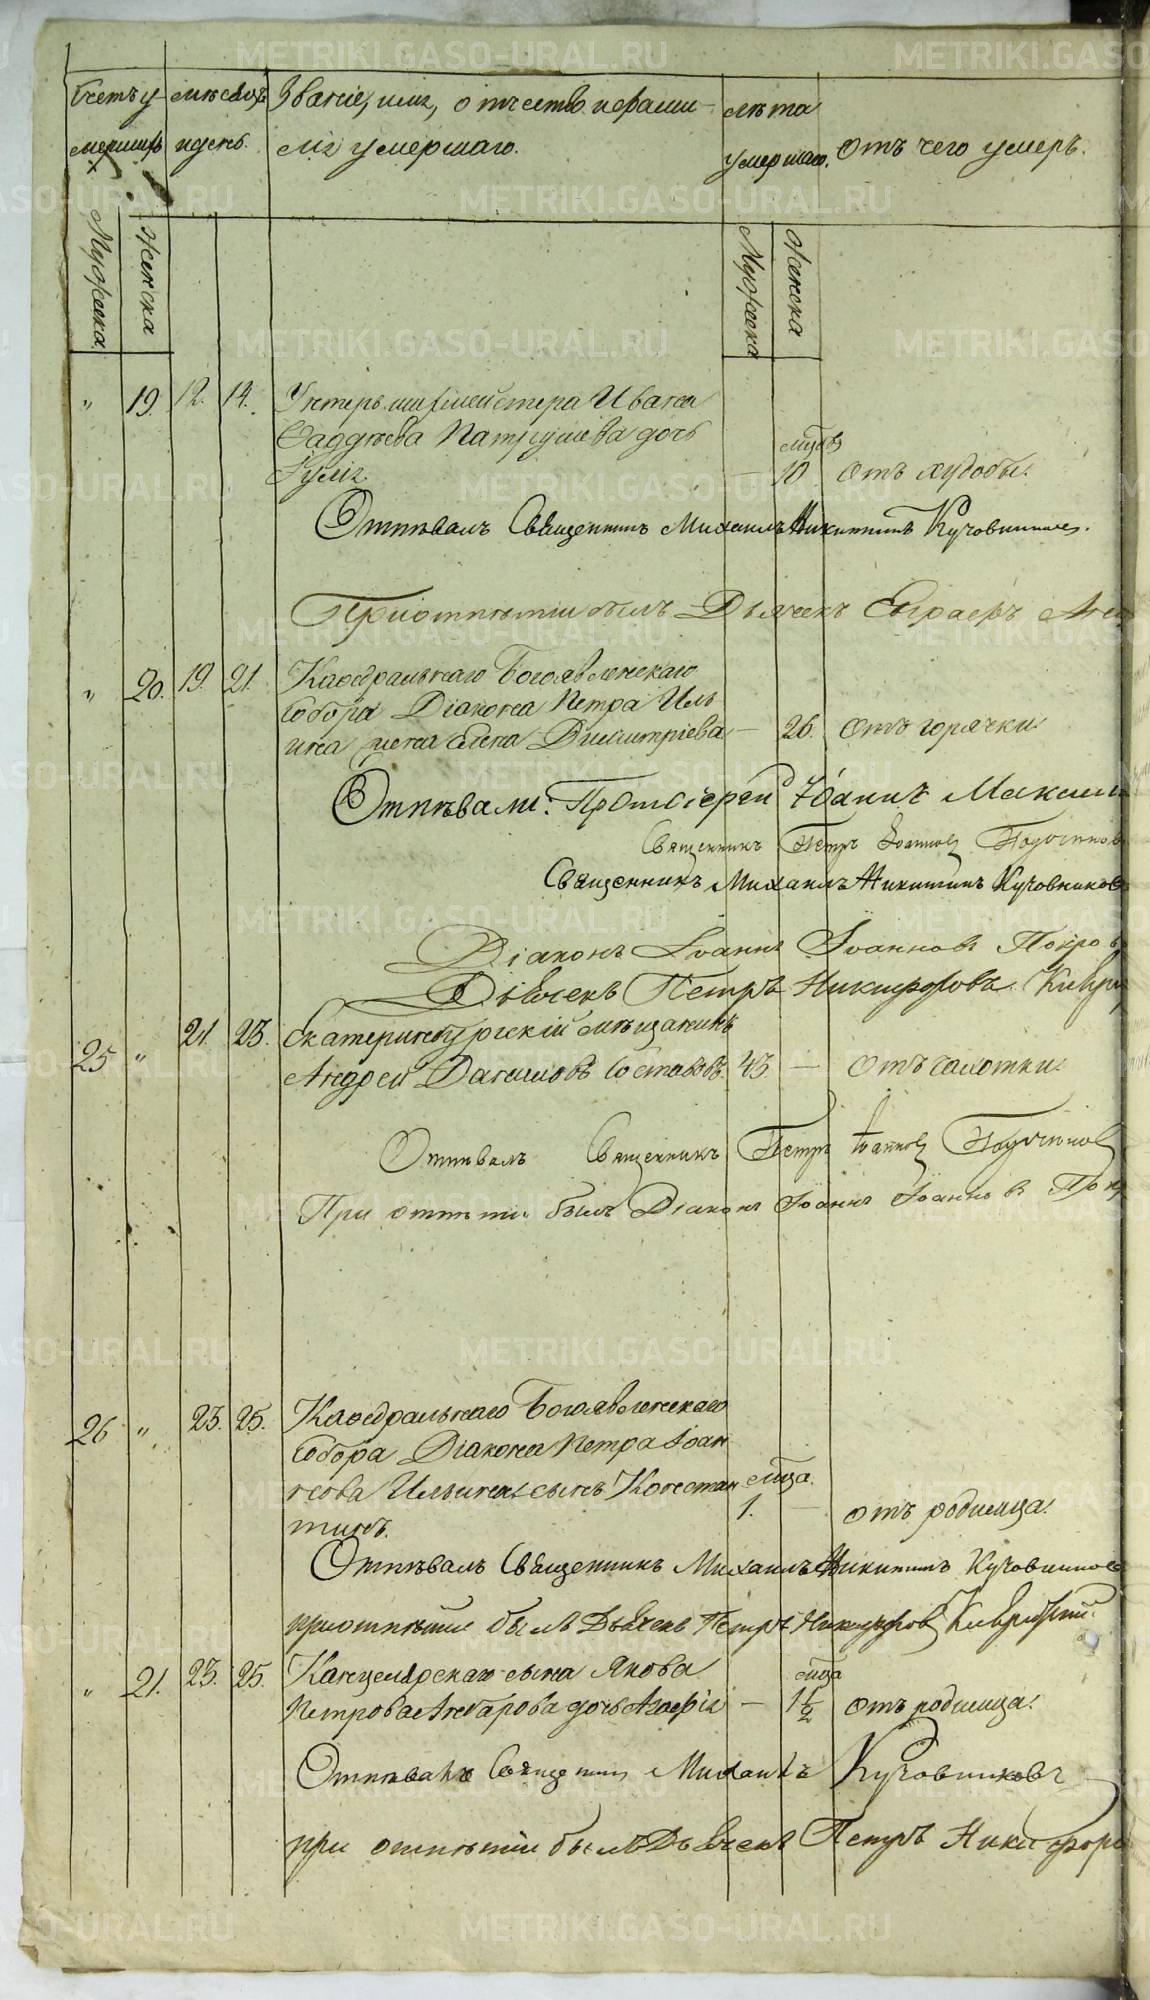 Счетъ у- мѣсяцъ Званіе, имя, отчество и фами- лѣта
мершихъ и день. лія умершаго. умершаго. отъ чего умеръ.
Мужеска Женска Мужеска Женска
" 19. 12. 14. Унтеръ-шихмейстера Ивана
Фаддѣева Патрушева дочь мцовъ
Іулія. — 10 отъ худобы.
Отпѣвалъ Священникъ Михаилъ Никитинъ Кучовниковъ.
При отпѣтіи былъ Дьячекъ
" 20. 19. 21. Каѳедральнаго Богоявленскаго
Собора Діакона Петра Ильи
ина жена Елена Димитріева — 26. отъ горячки
Отпѣвали: Протоіерей Іоаннъ
Священникъ Петръ Іоанновъ
Священникъ Михаилъ Никитинъ Кучовниковъ
Діаконъ Іоаннъ Іоанновъ Покров
Дьячекъ Петръ Никифоровъ
25 " 21. 23. Екатеринбургскій мѣщанинъ
Андрей Даниловъ 43. — отъ чахотки.
Отпѣвалъ Священникъ Петръ Іоанновъ
При отпѣтіи былъ Діаконъ Іоаннъ Іоанновъ Покр
26 " 23. 25. Каѳедральнаго Богоявленскаго
Собора Діакона Петра Іоан
нова Ильина сынъ Констан мца.
тинъ. 1. — отъ родимца.
Отпѣвалъ Священникъ Михаилъ Никитинъ Кучовниковъ
при отпѣтіи былъ Дьячекъ Петръ Никифоровъ
" 21. 23. 25. Канцелярскаго сына Якова мца
Петрова дочь Агафія — 1½ отъ родимца.
Отпѣвалъ Священникъ Михаилъ Кучовниковъ
при отпѣтіи былъ Дьячекъ Петръ Никифоро
METRIKI.GASO-URAL.RU